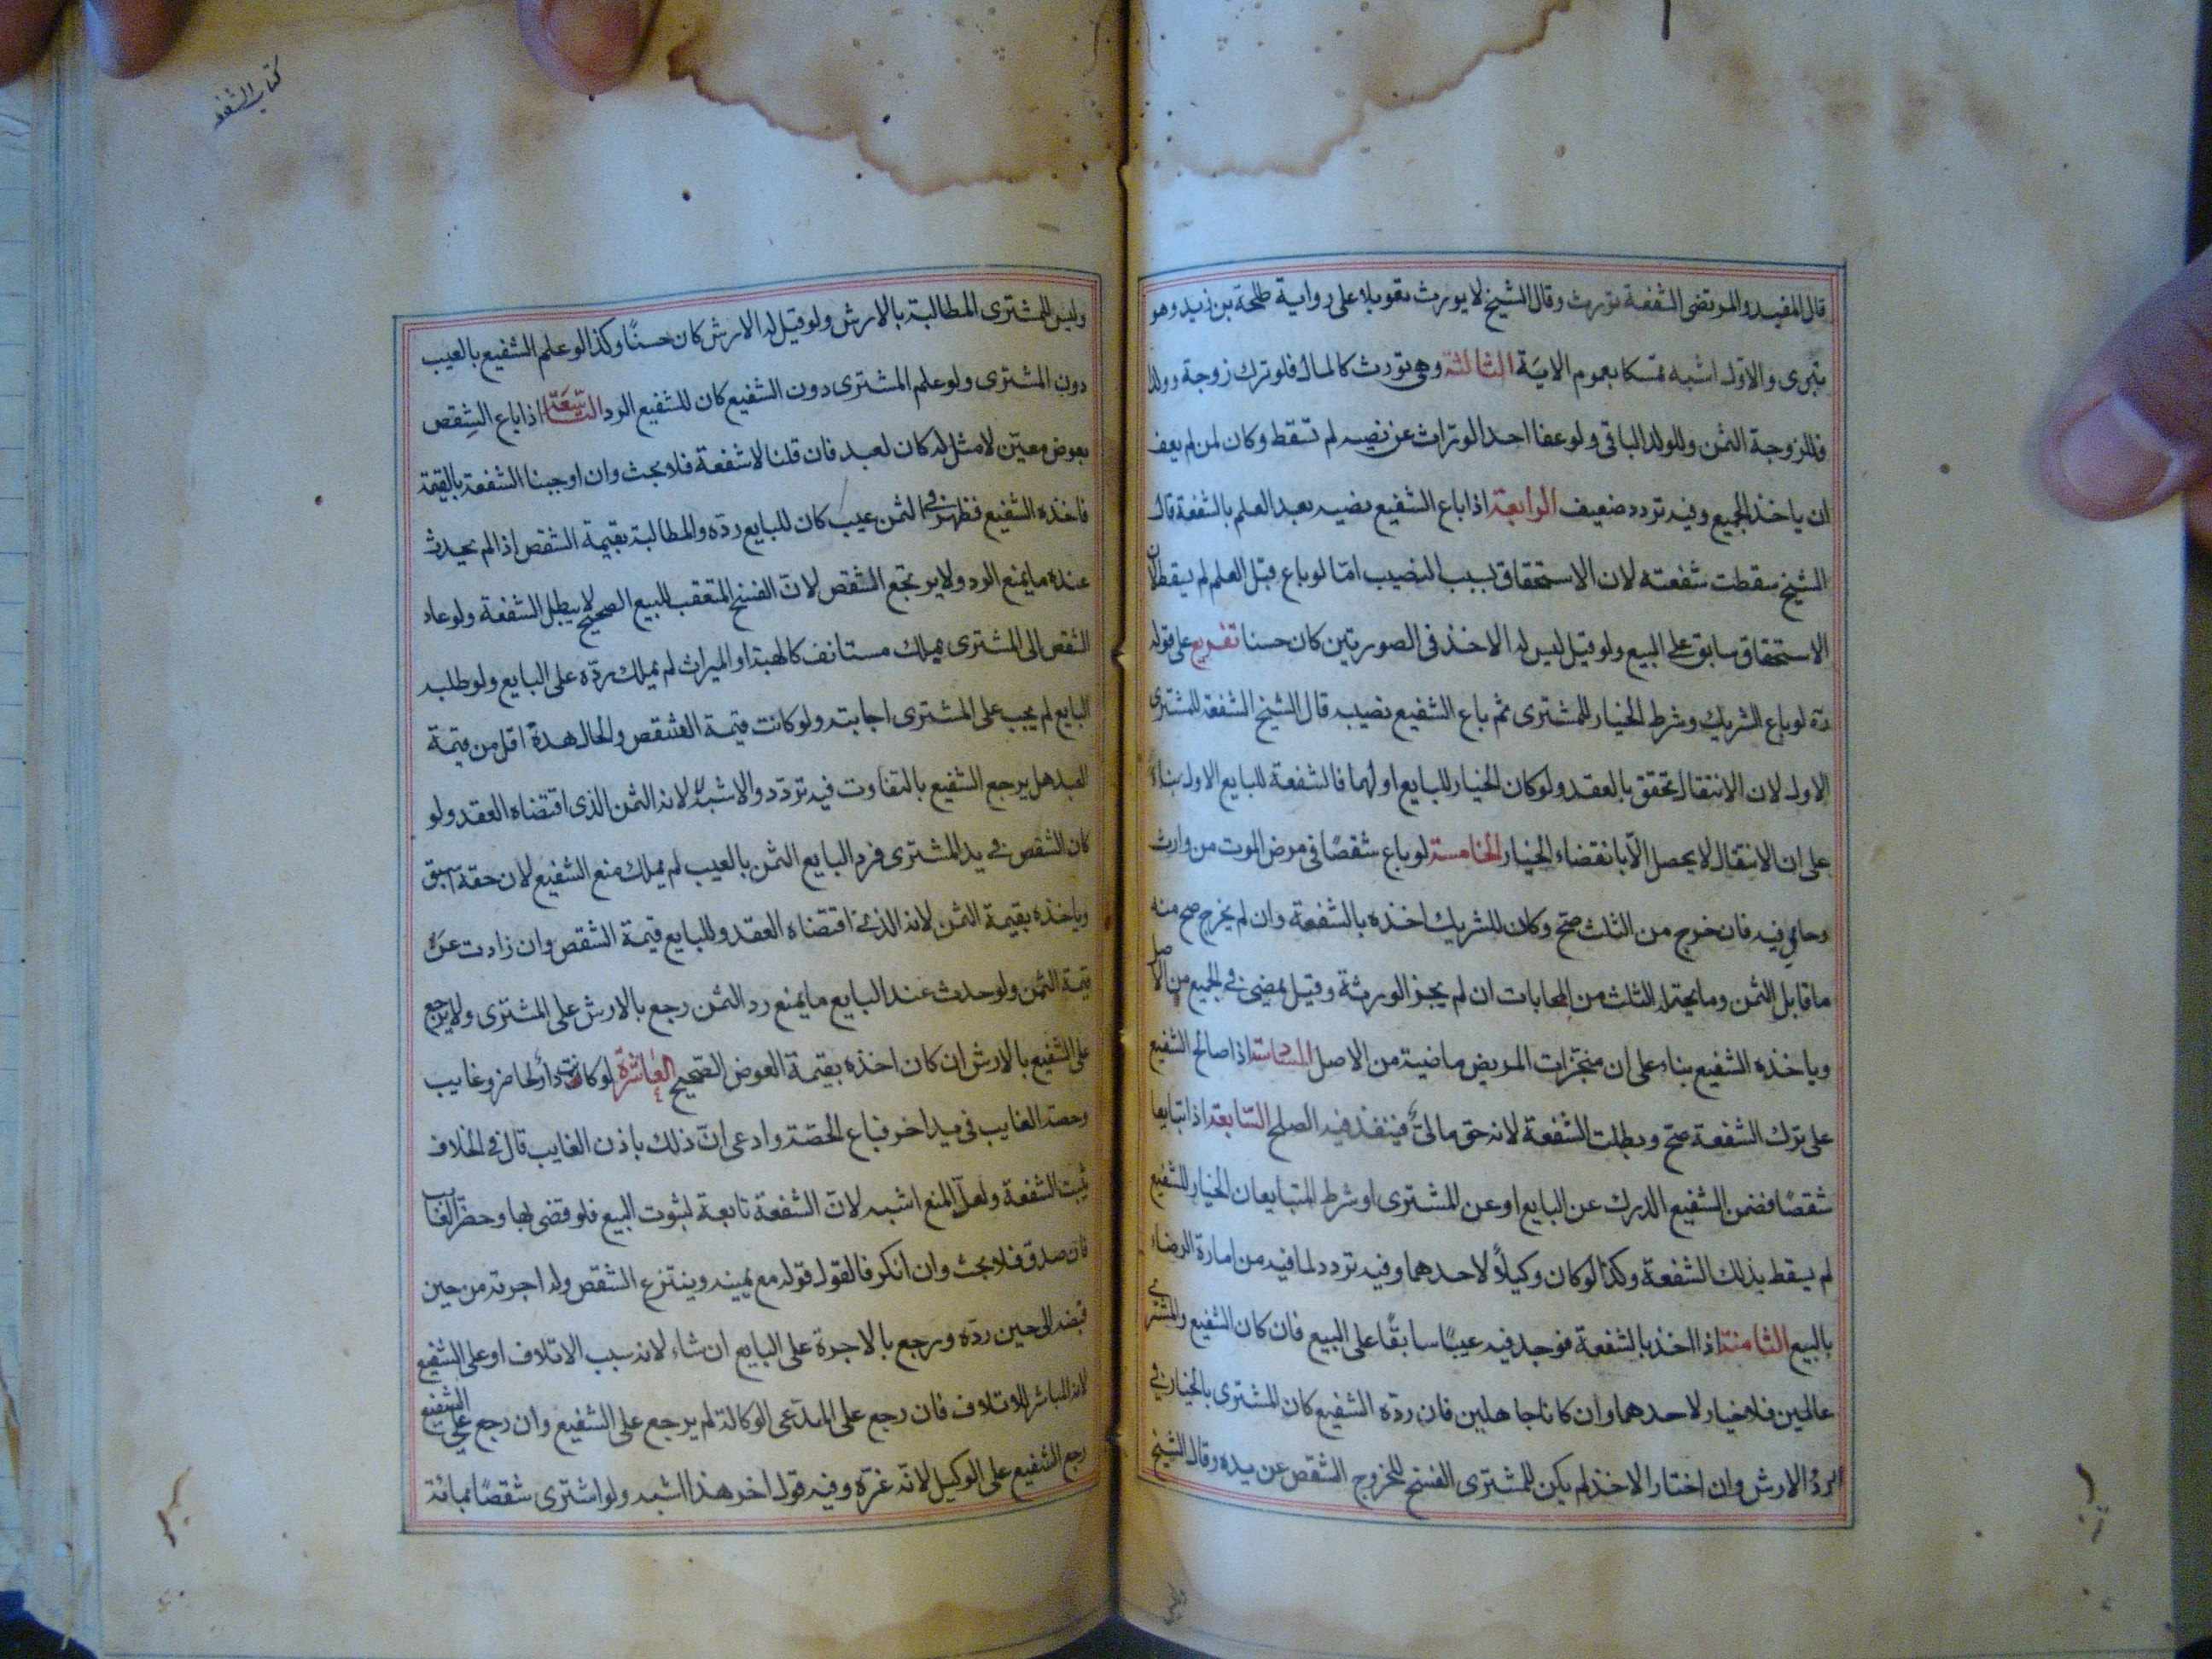 قال المفيد والمرتضى الشفعة تورث وقال الشيخ لا يورث تعويلا على رواية طلحة بن زيد وهو
بتري والاول اشبه تمسكا بعموم الاية الثالثة وهي تورث كالمال فلو ترك زوجة وولدا
فللزوجة الثمن وللولد الباقي ولو عفا احد الوراث عن نصيبه لم تسقط وكان لمن لم يعف
ان ياخذ الجميع وفيه تردد ضعيف الرابعة اذا باع الشفيع نصيبه بعد العلم بالشفعة قال
الشيخ سقطت شفعته لان الاستحقاق بسبب النصيب امّا لو باع قبل العلم لم يسقط لان
الاستحقاق سابق على البيع ولو قيل ليس له الاخذ في الصورتين كان حسنا تفريع على قوله
ره لو باع الشريك وشرط الخيار للمشترى ثم باع الشفيع نصيبه قال الشيخ الشفعة للمشترى
الاول لان الانتقال تحقق بالعقد ولو كان الخيار للبايع او لهما فالشفعة للبايع الاول بناءً
على ان الانتقال لا يحصل الّا بانقضاء الخيار الخامسة لو باع شقصًا في مرض الموت من وارث
وحابى فيه فان خرج من الثلث صحّ وكان للشريك اخذه بالشفعة وان لم يخرج صح منه
ما قابل الثمن وما يحتمله الثلث من المحابات ان لم يجز الورثة وقيل يمضي في الجميع من الاصل
وياخذه الشفيع بناء على ان منجّزات المريض ماضية من الاصل السادسة اذا صالح الشفيع
على ترك الشفعة صحّ وبطلت الشفعة لانه حق مالىّ فينفذ فيه الصلح السّابعة اذا تبايعا
شقصًا فضمن الشفيع الدرك عن البايع او عن المشترى او شرط المتبايعان الخيار للشفيع
لم يسقط بذلك الشفعة وكذا لو كان وكيلاً لاحدهما وفيه تردد لما فيه من امارة الرضاء
بالبيع الثامنة اذا اخذ بالشفعة فوجد فيه عيبًا سابقًا على البيع فان كان الشفيع والمشترى
عالمين فلا خيار لاحدهما وان كانا جاهلين فان ردّه الشفيع كان المشترى بالخيار في
الردّ والارش وان اختار الاخذ لم يكن للمشترى الفسخ لخروج الشقص عن يده وقال الشيخ
وليس
كتاب الشفعة
وليس للمشترى المطالبة بالارش ولو قيل له الارش كان حسنًا وكذا لو علم الشفيع بالعيب
دون المشترى ولو علم المشترى دون الشفيع كان للشفيع الرد التّاسعة اذا باع الشِقص
بعوض معيّن لا مثل له كان لعبد فان قلنا لا شفعة فلا بحث وان اوجبنا الشفعة بالقيمة
فاخذه الشفيع فظهر في الثمن عيب كان للبايع ردّه والمطالبة بقيمة الشقص اذا لم يحدث
عنده ما يمنع الرد ولا يرتجع الشقص لانّ الفسخ المتعقب للبيع الصحيح لا يبطل الشفعة ولو عاد
الشقص الى المشترى بملك مستانف كالهبة او الميراث لم يملك ردّه على البايع ولو طلبه
البايع لم يجب على المشترى اجابته ولو كانت قيمة الشقص والحال هذه اقل من قيمة
العبد هل يرجع الشفيع بالتفاوت فيه تردّد والاشبه لا لانه الثمن الذى اقتضاه العقد ولو
كان الشقص في يد المشترى فرد البايع الثمن بالعيب لم يملك منع الشفيع لان حقه اسبق
وياخذه بقيمة الثمن لانه الذي اقتضاه العقد وللبايع قيمة الشقص وان زادت عن
قيمة الثمن ولو حدث عند البايع ما يمنع رد الثمن رجع بالارش على المشترى ولا يرجع
على الشفيع بالارش ان كان اخذه بقيمة العوض الصّحيح العاشرة لو كانت دار لحاضر وغايب
وحصة الغايب في يد اخر فباع الحصّة وادعى انّ ذلك باذن الغايب قال في الخلاف
تثبت الشفعة ولعلّ المنع اشبه لانّ الشفعة تابعة لثبوت البيع فلو قضى بها وحضر الغايب
فان صدق فلا بحث وان انكر فالقول قوله مع يمينه وينتزع الشقص وله اجرته من حين
قبضه الى حين ردّه ويرجع بالاجرة على البايع ان شاء لانه سبب الاتلاف او على الشفيع
لانه المباشر للاتلاف فان رجع على المدّعى الوكالة لم يرجع على الشفيع وان رجع على الشفيع
رجع الشفيع على الوكيل لانّه غرّه وفيه قول اخر هذا اشبه ولو اشترى شقصًا بمائة